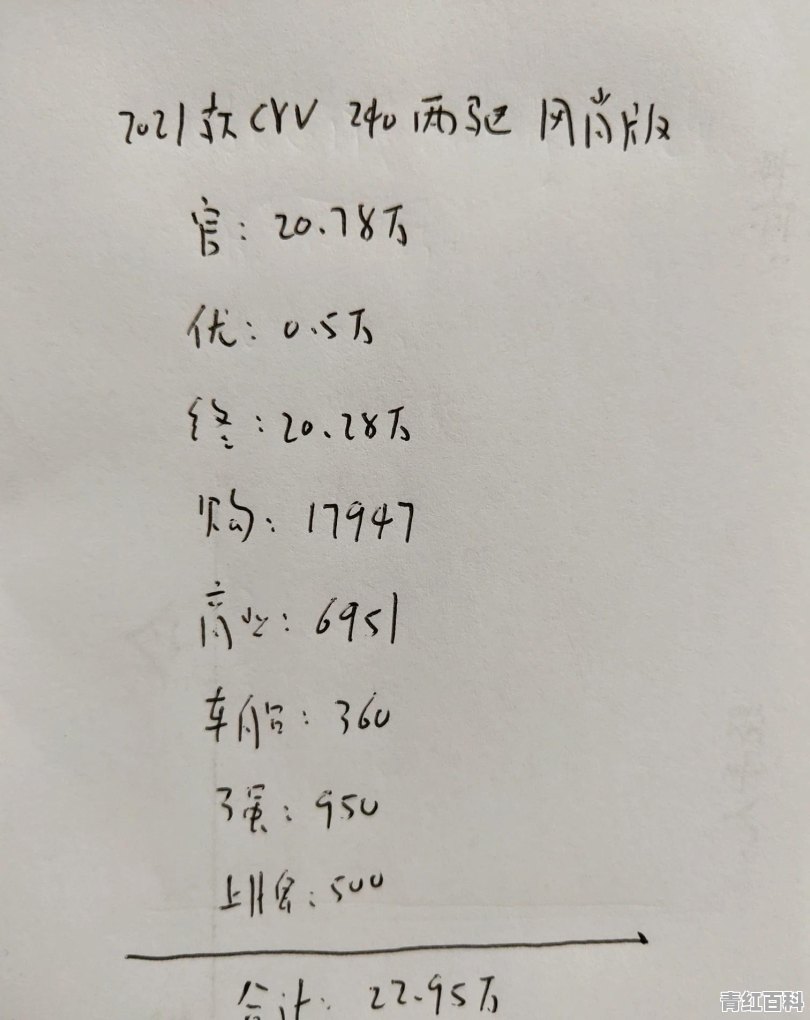 2021款CRV 240两驱 风尚版
官: 20.78万
优: 0.5万
终: 20.28万
购: 17947
商业: 6951
车船: 360
强: 950
上牌: 500
合计: 22.95万
青红百科